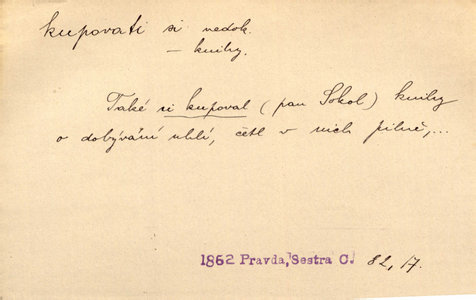 kupovati si nedok.
– knihy.
Také si kupoval (pan Sokol) knihy
o dobývání uhlí, četl v nich pilně,...
1862 Pravda, Sestra C. 82, 17.